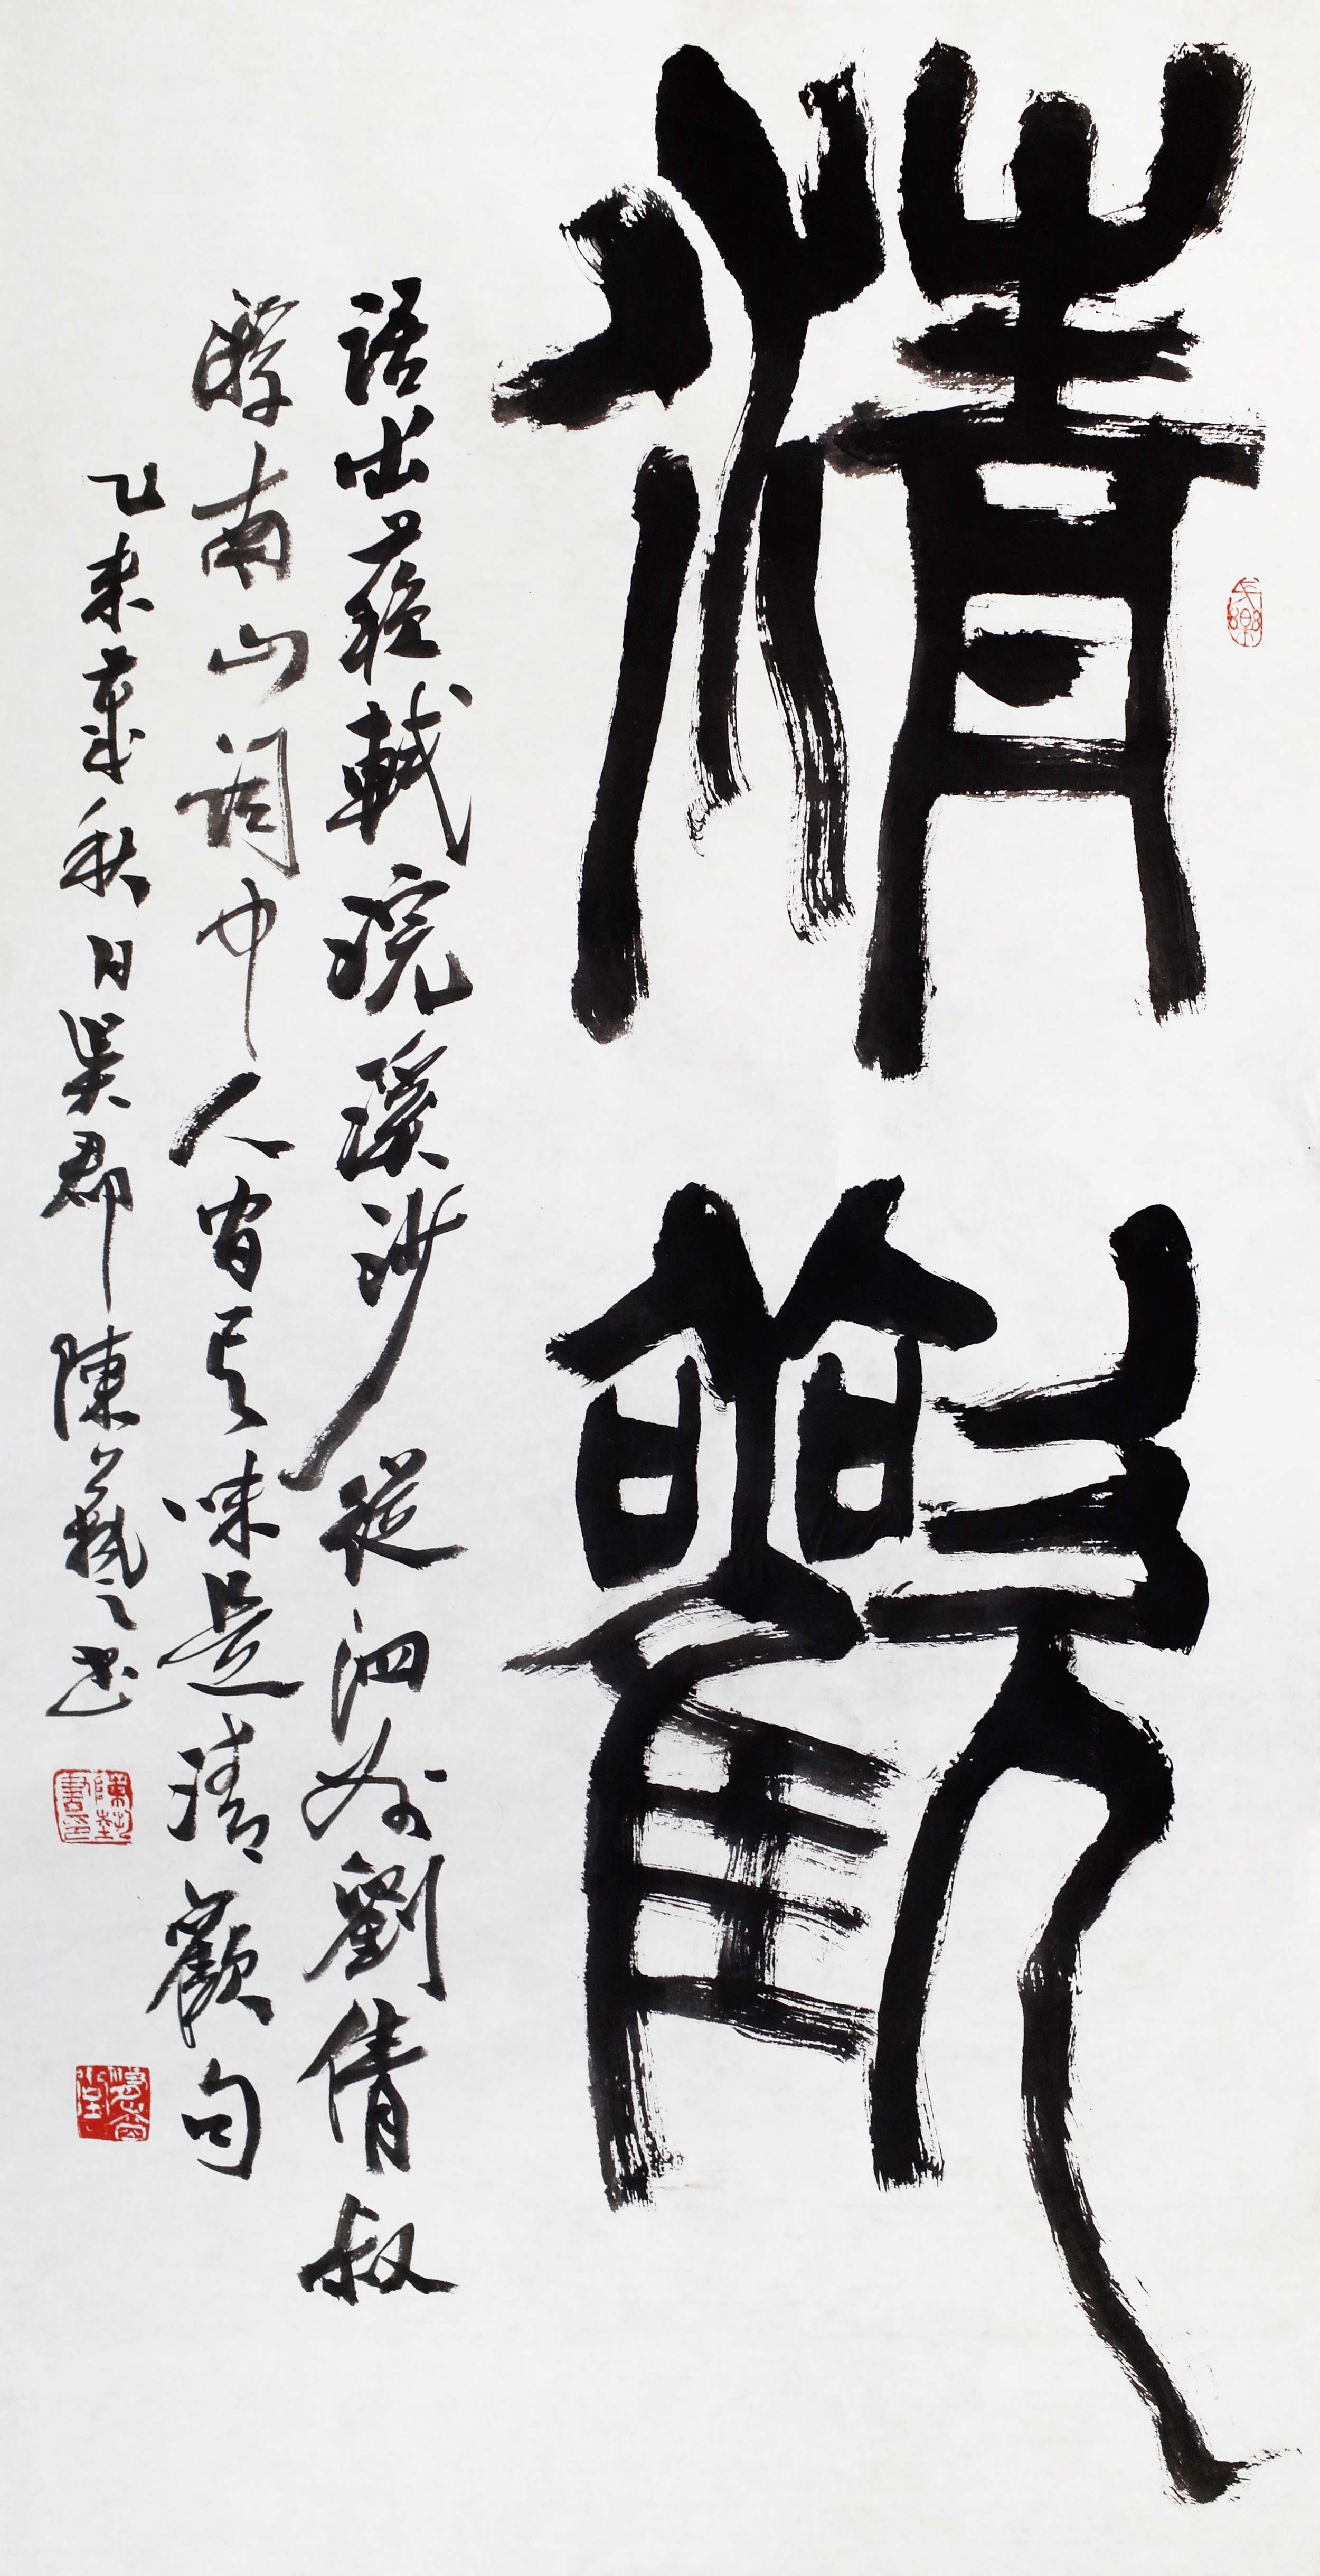 清歡
語出蘇軾浣溪沙從泗州劉倩叔
游南山詞中人間有味是清歡句
乙未歲秋日吳郡陳藝書
陳藝書印